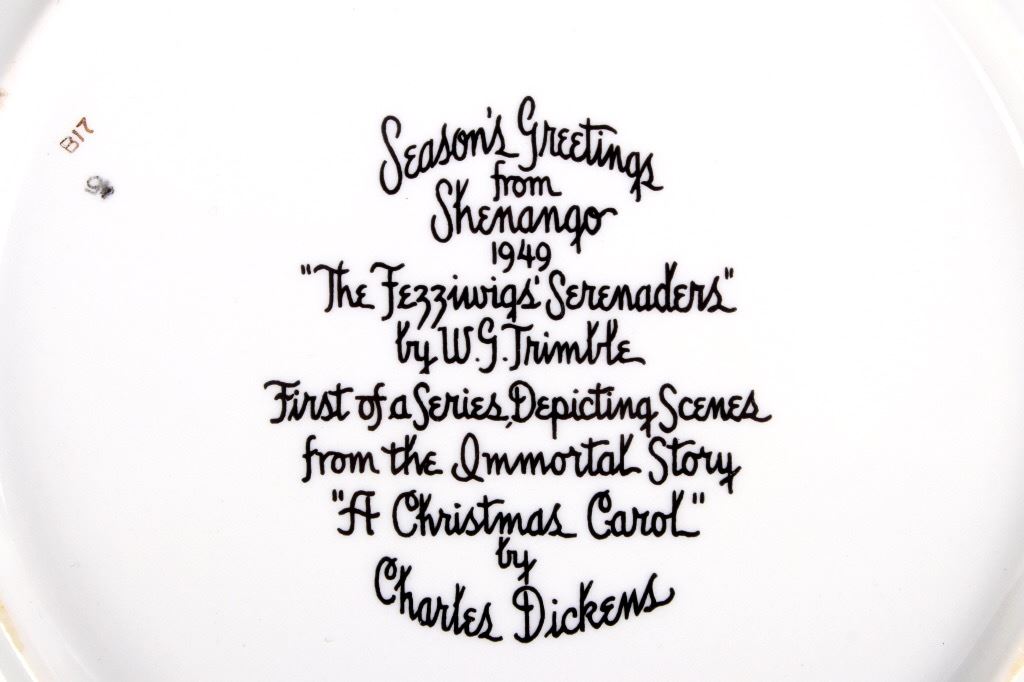 B17
Season's Greetings
from
Shenango
1949
"The Fezziwigs' Serenaders"
by W.G. Trimble
First of a Series, Depicting Scenes
from the Immortal Story
"A Christmas Carol"
by
Charles Dickens